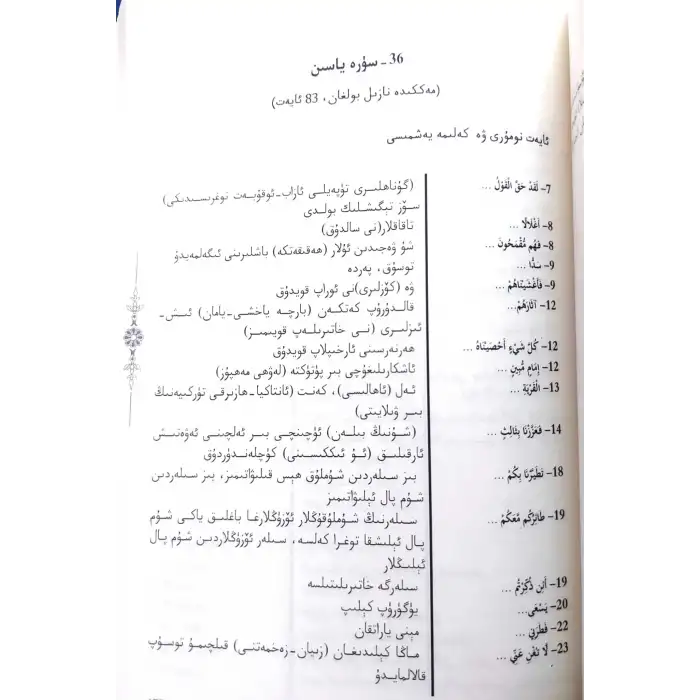 36 ـ سۈرە ياسىن
(مەككىدە نازىل بولغان، 83 ئايەت)
ئايەت نومۇرى ۋە كەلىمە يەشمىسى
7– لَقَدْ حَقَّ الْقَوْلُ ... (گۇناھلىرى تۈپەيلى ئازاب-ئوقۇبەت توغرىسىدىكى)
سۆز تېگىشلىك بولدى
8– أَغْلَالًا ... تاقاقلار(نى سالدۇق)
8– فَهُم مُّقْمَحُونَ ... شۇ ۋەجىدىن ئۇلار (ھەقىقەتكە) باشلىرىنى ئىگەلمەيدۇ
9– سَدًّا ... توسۇق، پەردە
9– فَأَغْشَيْنَاهُمْ ... ۋە (كۆزلىرى)نى ئوراپ قويدۇق
12– آثَارَهُمْ... قالدۇرۇپ كەتكەن (بارچە ياخشى-يامان) ئىش-
ئىزلىرى (نى خاتىرىلەپ قويىمىز)
12– كُلَّ شَيْءٍ أَحْصَيْنَاهُ ... ھەرنەرسىنى ئارخىپلاپ قويدۇق
12– إِمَامٍ مُّبِينٍ ... ئاشكارىلىغۇچى بىر پۈتۈكتە (لەۋھى مەھپۇز)
13– الْقَرْيَةِ ... ئەل (ئاھالىسى)، كەنت (ئانتاكيا-ھازىرقى تۈركىيەنىڭ
بىر ۋىلايىتى)
14– فَعَزَّزْنَا بِثَالِثٍ ... (شۇنىڭ بىلەن) ئۈچىنچى بىر ئەلچىنى ئەۋەتىش
ئارقىلىق (ئۇ ئىككىسىنى) كۈچلەندۈردۇق
18– تَطَيَّرْنَا بِكُمْ ... بىز سىلەردىن شۇملۇق ھېس قىلىۋاتىمىز، بىز سىلەردىن
شۇم پال ئېلىۋاتىمىز
19– طَائِرُكُم مَّعَكُمْ ... سىلەرنىڭ شۇملۇقۇڭلار ئۆزۈڭلارغا باغلىق ياكى شۇم
پال ئېلىشقا توغرا كەلسە، سىلەر ئۆزۈڭلاردىن شۇم پال
ئېلىڭلار
19– أَئِن ذُكِّرْتُم ... سىلەرگە خاتىرىلىتىلسە
20– يَسْعَى... يۈگۈرۈپ كېلىپ
22– فَطَرَنِي ... مېنى ياراتقان
23– لَا تُغْنِ عَنِّي ... ماڭا كېلىدىغان (زىيان-زەخمەتنى) قىلچىمۇ توسۇپ
قالالمايدۇ